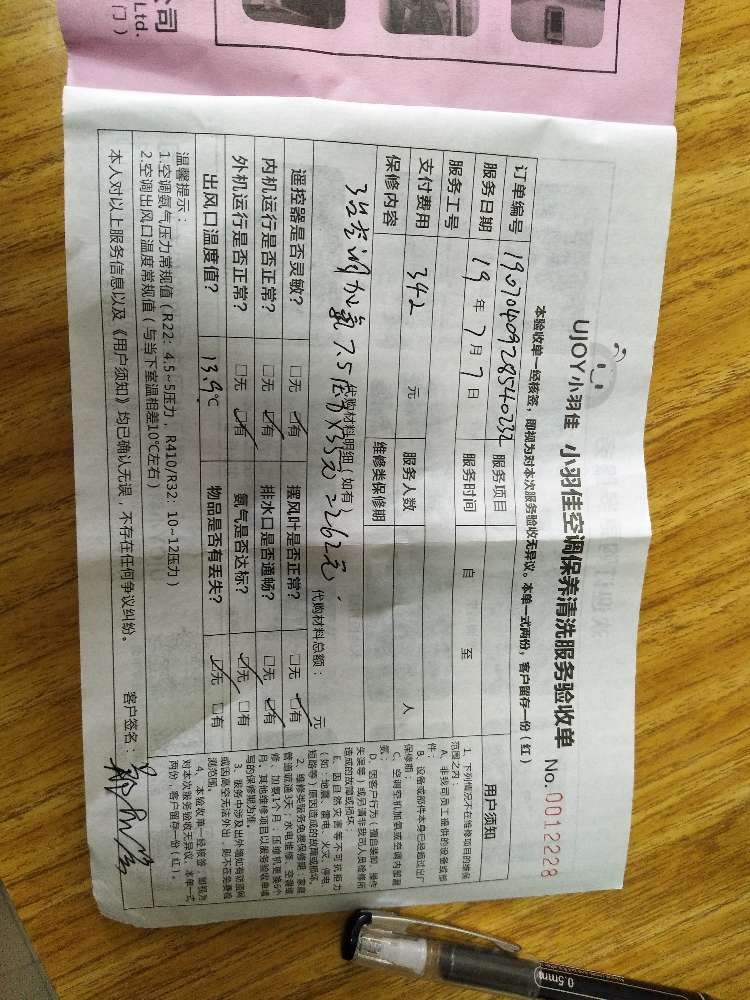 公司
Ltd.
门)
UJOY小羽佳 小羽佳空调保养清洗服务验收单 No.0012228
本验收单一经核签，即视为对本次服务验收无异议。本单一式两份，客户留存一份（红）
订单编号 服务项目
服务日期 19年7月7日 服务时间 自 至
服务工号
支付费用 342 元 服务人数 人
保修内容 维修类保修期
代购材料明细（如有
3匹空调加氟7.5压力X35元=262元. 代购材料总额： 元
遥控器是否灵敏？ □无 ☑有 摆风叶是否正常？ □无 ☑有
内机运行是否正常？ □无 ☑有 排水口是否通畅？ □无 ☑有
外机运行是否正常？ □无 ☑有 氨气是否达标？ ☑无 □有
出风口温度值？ 13.9℃ 物品是否有丢失？ ☑无 □有
温馨提示：
1.空调氨气压力常规值（R22：4.5~5压力，R410/R32：10~12压力）
2.空调出风口温度常规值（与当下室温相差10℃左右）
本人对以上服务信息以及《用户须知》均已确认无误，不存在任何争议纠纷。 客户签名：
用户须知
1、下列情况不在维修项目的维保
范围之内：
A、非我司员工提供的设备或部
件；
B、设备或部件本身已经超过出厂
保修期；
C、空调空机加氨或空调内部漏
氨；
D、因客户行为（擅自装卸、操作
失误等）或另请非我司人员检修所
造成的故障或损坏
E、因自然灾害等不可抗拒力
（如：地震、雷电、火灾、停电、
短路等）原因造成的故障或损坏。
2、维修类服务免费保修期：家庭
管道疏通1天；水电维修、空调维
修、加氨1个月；压缩机更换6个
月，其他维修项目以服务验收单填
写的保修期为准。
3、服务中涉及出外墙如有防盗网
或因高空无法外出，则不在免费检
测范围。
4、本验收单一经核签，即视为
对本次服务验收无异议，本单一式
两份，客户留存一份（红）。
0.5mm